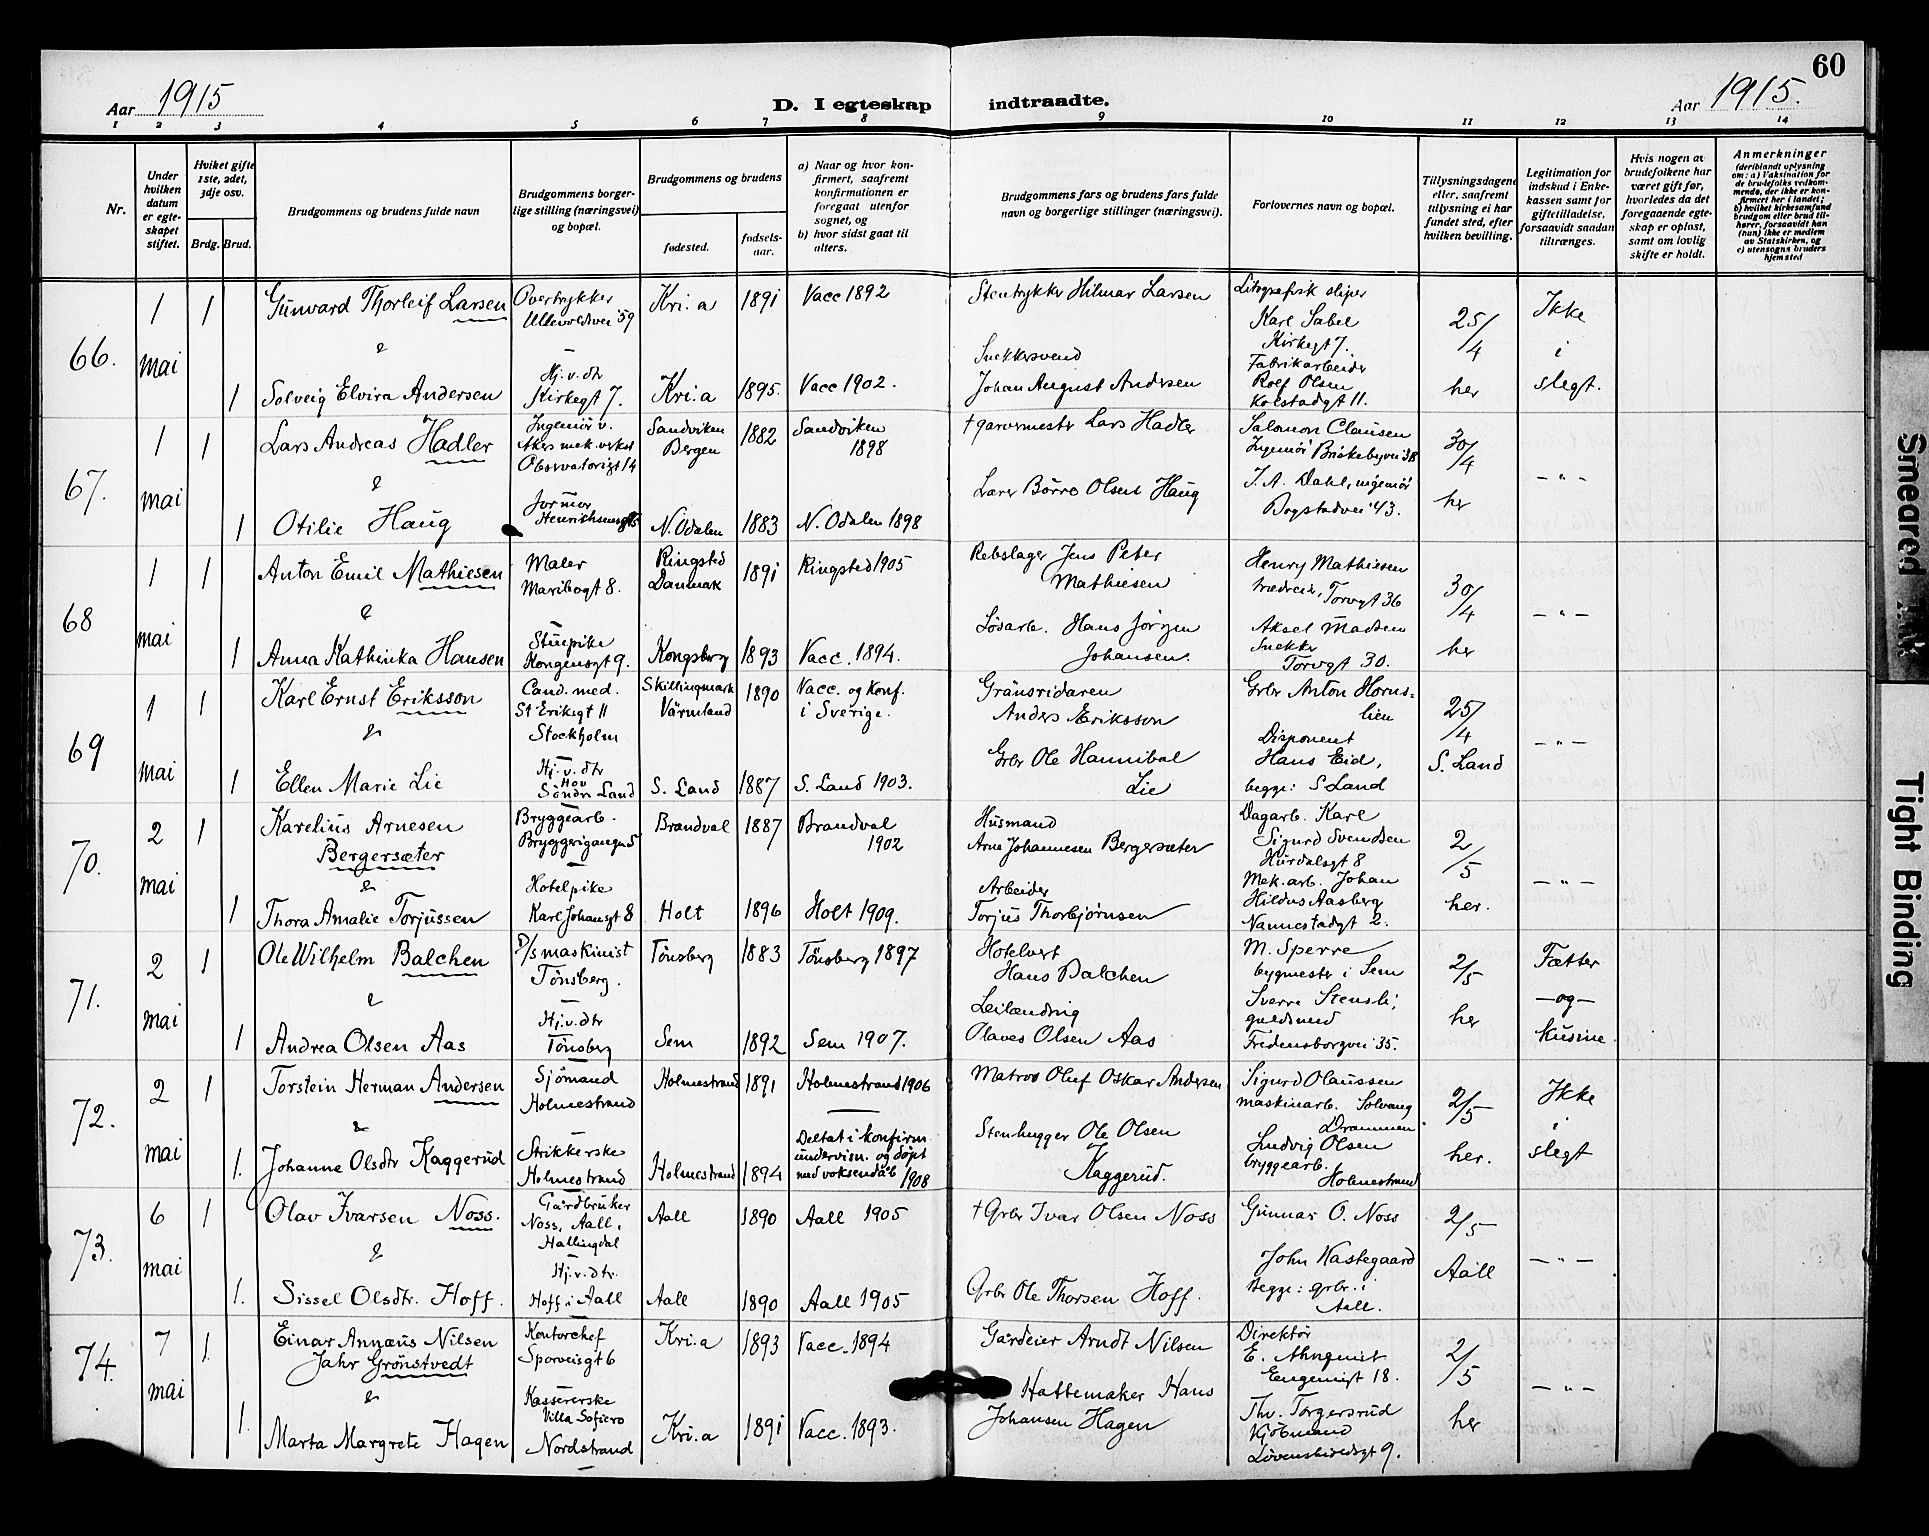 Aar 1915
D. I egteskap indtraadte.
Aar 1915.
60
1 2 3 4 5 6 7 8 9 10 11 12 13 14
Nr.
Under hvilken datum er egteskapet stiftet.
Hviket gifte 1ste, 2det, 3dje osv.
Brdg. Brud.
Brudgommens og brudens fulde navn
Brudgommens borgerlige stilling (næringsvei) og bopæl.
Brudgommens og brudens
fødested.
fødselsaar.
a) Naar og hvor konfirmert, saafremt konfirmationen er foregaat utenfor sognet, og
b) hvor sidst gaat til alters.
Brudgommens fars og brudens fars fulde navn og borgerlige stillinger (næringsvei).
Forlovernes navn og bopæl.
Tillysningsdagene eller, saafremt tillysning ei har fundet sted, efter hvilken bevilling.
Legitimation for indskud i Enkekassen samt for giftetilladelse, forsaavidt saadan tiltrænges.
Hvis nogen av brudefolkene har været gift før, hvorledes da det foregaaende egteskap er opløst, samt om lovlig skifte er holdt.
Anmerkninger
(deriblandt oplysning om: a) Vaksination for de brudefolks vedkommende, der ikke er konfirmert her i landet; b) hvilket kirkesamfund brudgom eller brud tilhører, forsaavidt han (hun) ikke er medlem av Statskirken, og c) utensogns bruders hjemsted
66.
1 Mai
1
Gunvard Thorleif Larsen
Overtrykker
Ullevoldsvei 59
Kri.a
1891
Vacc 1892
Stentrykker Hilmar Larsen
Litografisk sliper
Karl Sabel
Kirkegt 7.
25/4
Ikke
&
i
1
Solveig Elvira Andersen
Hj.v.dtr
Kirkegt 7.
Kri.a
1895.
Vacc 1902.
Snekkersvend
Johan August Andersen
Fabrikarbeider
Rolf Olsen
Kolstadgt 11.
her
slegt.
67.
1 Mai
1
Lars Andreas Hadler
Ingeniör v.
Akers mek. verkst
Observatorigt 14
Sandviken
Bergen
1882
Sandviken
1898
† garvermester Lars Hadler
Salomon Clausen
Ingeniör Briskebyvei 38
30/4
&
- " -
1
Otilie Haug
Jormor
N. Odalen
1883
N. Odalen 1898
Lærer Börre Olsen Haug
J. A. Dahl, ingeniör
Bogstadvei 43.
her
68
1 Mai
1
Anton Emil Mathiesen
Maler
Maribogt 8.
Ringsted
Danmark
1891
Ringsted 1905
Rebslager Jens Peter
Mathiesen
Henry Mathiesen
Torvgt 36
30/4
&
- " -
1
Anna Kathinka Hansen
Stuepike
Kongensgt 9.
Kongsberg
1893
Vacc. 1894.
Lösarb. Hans Jörgen
Johansen.
Aksel Madsen
Snekker
Torvgt 30.
her
69
1 Mai
1
Karl Ernst Eriksson
Cand. med.
St Eriksgt 11
Stockholm
Skillingmark
Värmland
1890
Vacc. og Konf.
i Sverige.
Gränsridaren
Anders Eriksson
Grbr Anton Horns-
lien
25/4
&
- " -
1
Ellen Marie Lie
Hj.v.dtr
Hov
Söndre Land
S. Land
1887
S. Land 1903.
Grbr Ole Hannibal
Lie
Disponent
Hans Eid,
begge: S Land
S. Land
70.
2 Mai
1
Karelius Arnesen
Bergersæter
Bryggearb.
Bryggerigangen 5
Brandval
1887
Brandval
1902
Husmand
Arne Johannesen Bergersæter
Dagarb. Karl
Sigurd Svendsen
Hurdalsgt 8
2/5
&
- " -
1
Thora Amalie Torjussen
Hotelpike
Karl Johansgt 8
Holt
1896
Holt 1909.
Arbeider
Torjus Thorbjörnsen
Mek. arb. Johan
Hildus Aasberg
Nannestadgt 2.
her.
71.
2 Mai
1
Ole Wilhelm Balchen
D/s maskinist
Tönsberg.
Tönsberg
1883
Tönsberg 1897
Hotelvert
Hans Balchen
M. Sperre
bygmester i Sem
2/5
Fætter
&
-og-
1
Andrea Olsen Aas
Hj.v.dtr
Tönsberg
Sem
1892
Sem 1907.
Leilændning
Olaves Olsen Aas
Sverre Stensli,
guldsmed
Fredensborgvei 35.
her
kusine.
72.
2 Mai
1
Torstein Herman Andersen
Sjömand
Holmestrand
Holmestrand
1891
Holmestrand 1906
Matros Oluf Oskar Andersen
Sigurd Olaussen
maskinarb. Solvang
Drammen
2/5
Ikke
&
i
1.
Johanne Olsdtr Kaggerud
Strikkerske
Holmestrand
Holmestrand
1894
Deltat i konfirm.
undervisn. og döpt
med voksendåb
1908
Stenhugger Ole Olsen
Kaggerud.
Ludvig Olsen
bryggearb.
Holmestrand
her.
slegt
73.
6 Mai
1
Olav Ivarsen Noss.
Gårdbruker
Noss, Aall,
Hallingdal
Aall
1890
Aall 1905
† Grbr Ivar Olsen Noss
Gunnar O. Noss
2/5
&
- " -
1.
Sissel Olsdtr. Hoff.
Hj.v.dtr.
Hoff i Aall
Aall
1890
Aall 1905
Grbr Ole Thorsen Hoff.
John Hastegaard
Begge: grbr. i
Aall.
Aall
74.
7 Mai
1.
Einar Annæus Nilsen
Jahr Grönstvedt
Kontorchef
Sporveisgt 6
Kri.a
1893
Vacc. 1894
Gårdeier Arndt Nilsen
Direktör
E. Almquist
Eugeniegt 18.
2/5
&
- " -
1.
Marta Margrete Hagen
Kassererske
Villa Sofiero
Nordstrand
Kri.a
1891
Vacc. 1893.
Hattemaker Hans
Johansen Hagen
Thv. Torgersrud
Kjöbmand
Lövenskioldsgt 9.
her
Smeared Ink
Tight Binding